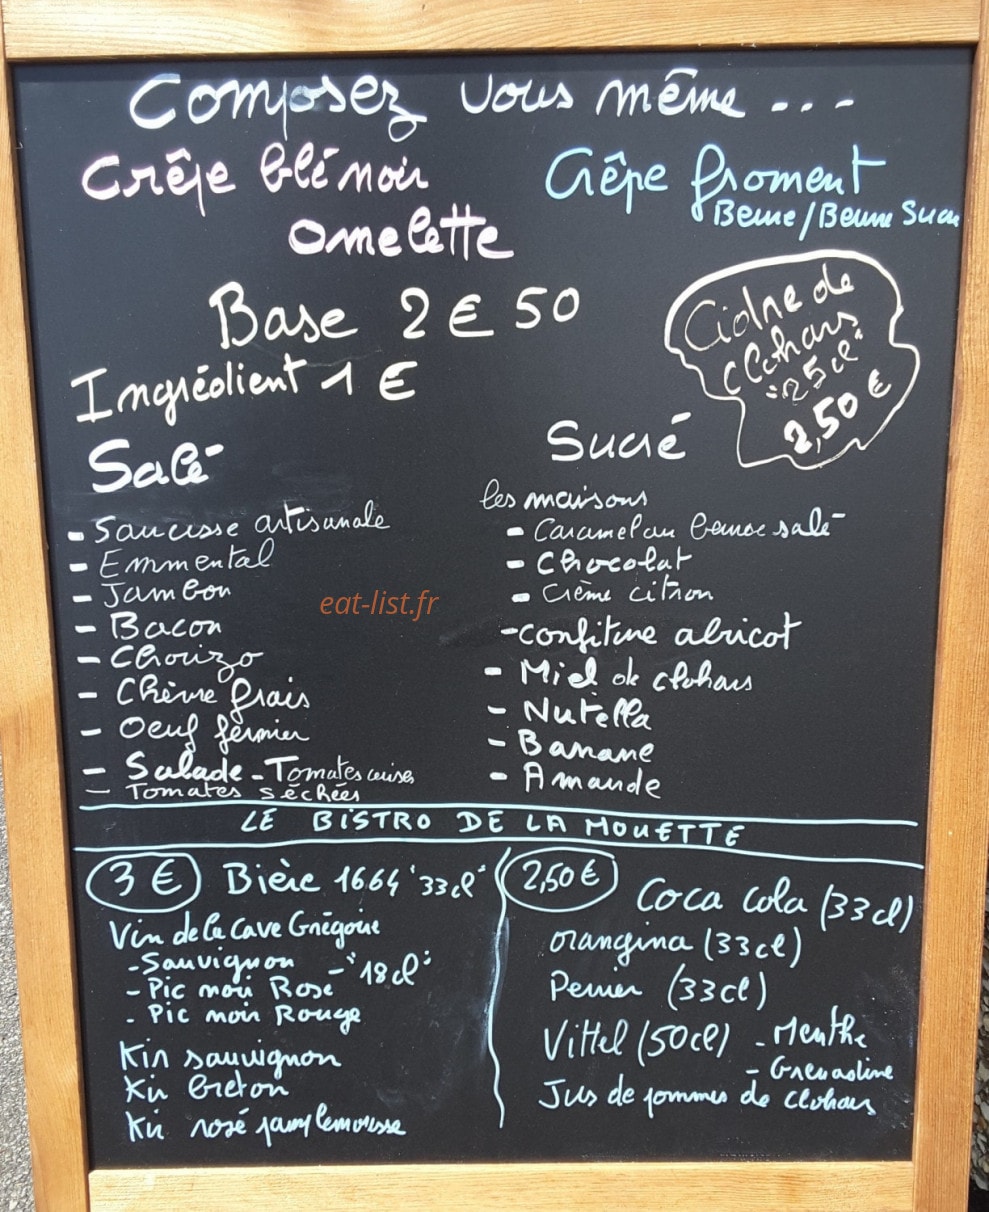 Composez vous même...
Crêpe blé noir
Omelette
Crêpe froment
Beurre/Beurre Sucre
Base 2€50
Ingrédient 1€
Cidre de
Clohars
"25cl"
2,50€
Salé
- Saucisse artisanale
- Emmental
- Jambon
- Bacon
- Chorizo
- Chèvre frais
- Oeuf fermier
- Salade - Tomates cerises
- Tomates séchées
Sucré
les maisons
- Caramel au beurre salé
- Chocolat
- Crème citron
- confiture abricot
- Miel de Clohars
- Nutella
- Banane
- Amande
eat-list.fr
LE BISTRO DE LA MOUETTE
3€ Bière 1664 "33cl"
Vin de la Cave Grégoire
- Sauvignon
- Pic noir Rosé - "18cl"
- Pic noir Rouge
Kir sauvignon
Kir breton
Kir rosé pamplemousse
2,50€ Coca cola (33cl)
Orangina (33cl)
Perrier (33cl)
Vittel (50cl) - Menthe
- Grenadine
Jus de pommes de Clohars